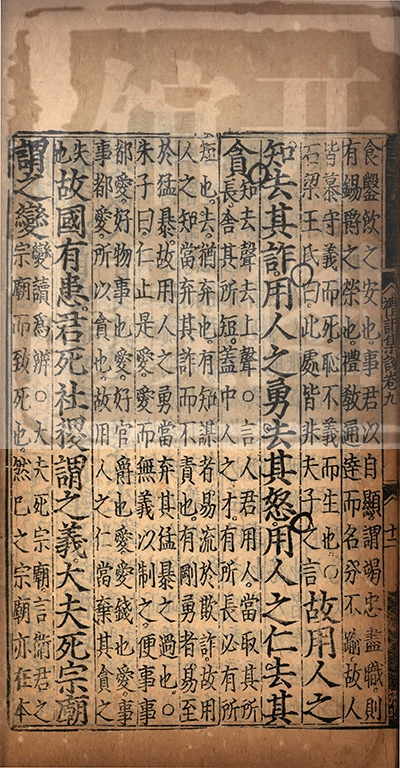 禮記集說卷九 十二
食饗飲之安也。事君以自顯。謂竭忠盡職。則
有錫爵之榮也。禮教通達而名分不踰。故人
皆慕守義而死。恥不義而生也。○
石梁王氏曰。此處皆非夫子之言
故用人之
知去其詐。用人之勇去其怒。用人之仁去其
貪
知去聲。去上聲。○言人君用人。當取其所
長。舍其所短。蓋中人之才。有所長必有所
短也。去。猶棄也。有知謀者易流於欺詐。故用
人之知當棄其詐而不責也。有剛勇者易至
於猛暴。故用人之勇當棄其猛暴之過也。
朱子曰。仁止是愛。愛而無義以制之。便事事
都愛。好物事也愛。好官爵也愛。愛錢也愛。事
事都愛。所以貪也。故用人之仁當棄其貪之
失
也
故國有患。君死社稷謂之義大夫死宗廟
謂之變
變讀為辨。○大夫死宗廟。言衛君之
宗廟而致死也。然己之宗廟亦在本